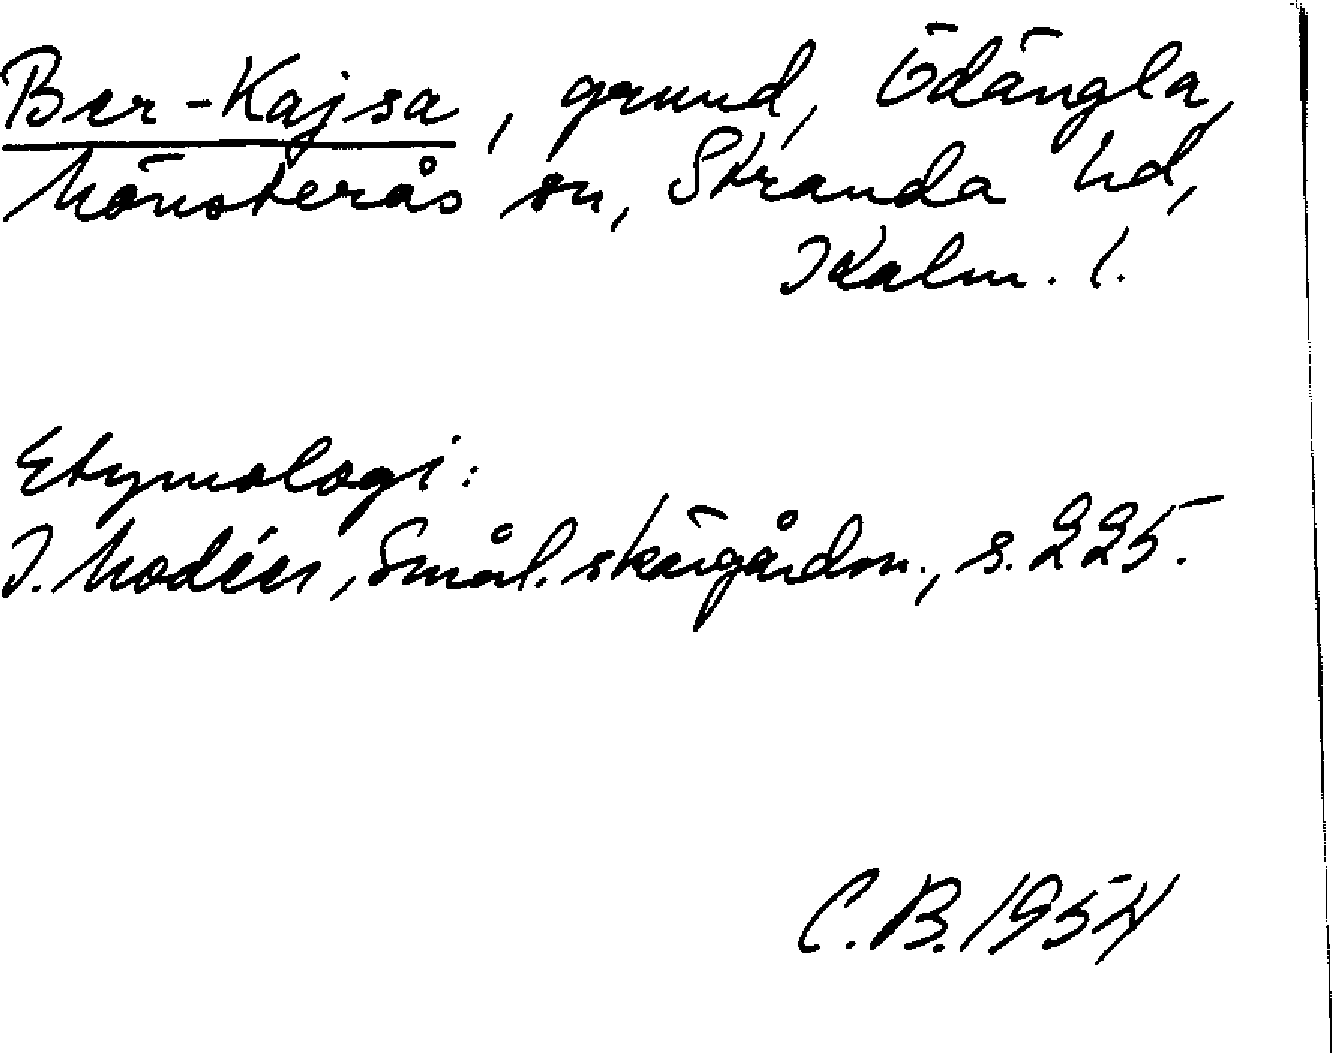 Ber-Kajsa, grund, Ödängla,
Mönsterås sn, Stranda hd,
Kalm. l.
Etymologi:
I. Modéer, Smål. skärgårdsn., s. 225.
C. B. 1954